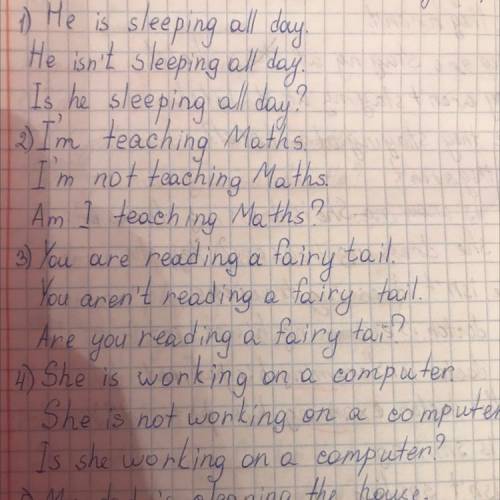 1) He is sleeping all day.
He isn't sleeping all day.
Is he sleeping all day?
2) I'm teaching Maths.
I'm not teaching Maths.
Am I teaching Maths?
3) You are reading a fairy tail.
You aren't reading a fairy tail.
Are you reading a fairy tai?
4) She is working on a computer.
She is not working on a computer
Is she working on a computer?
is cleaning the house